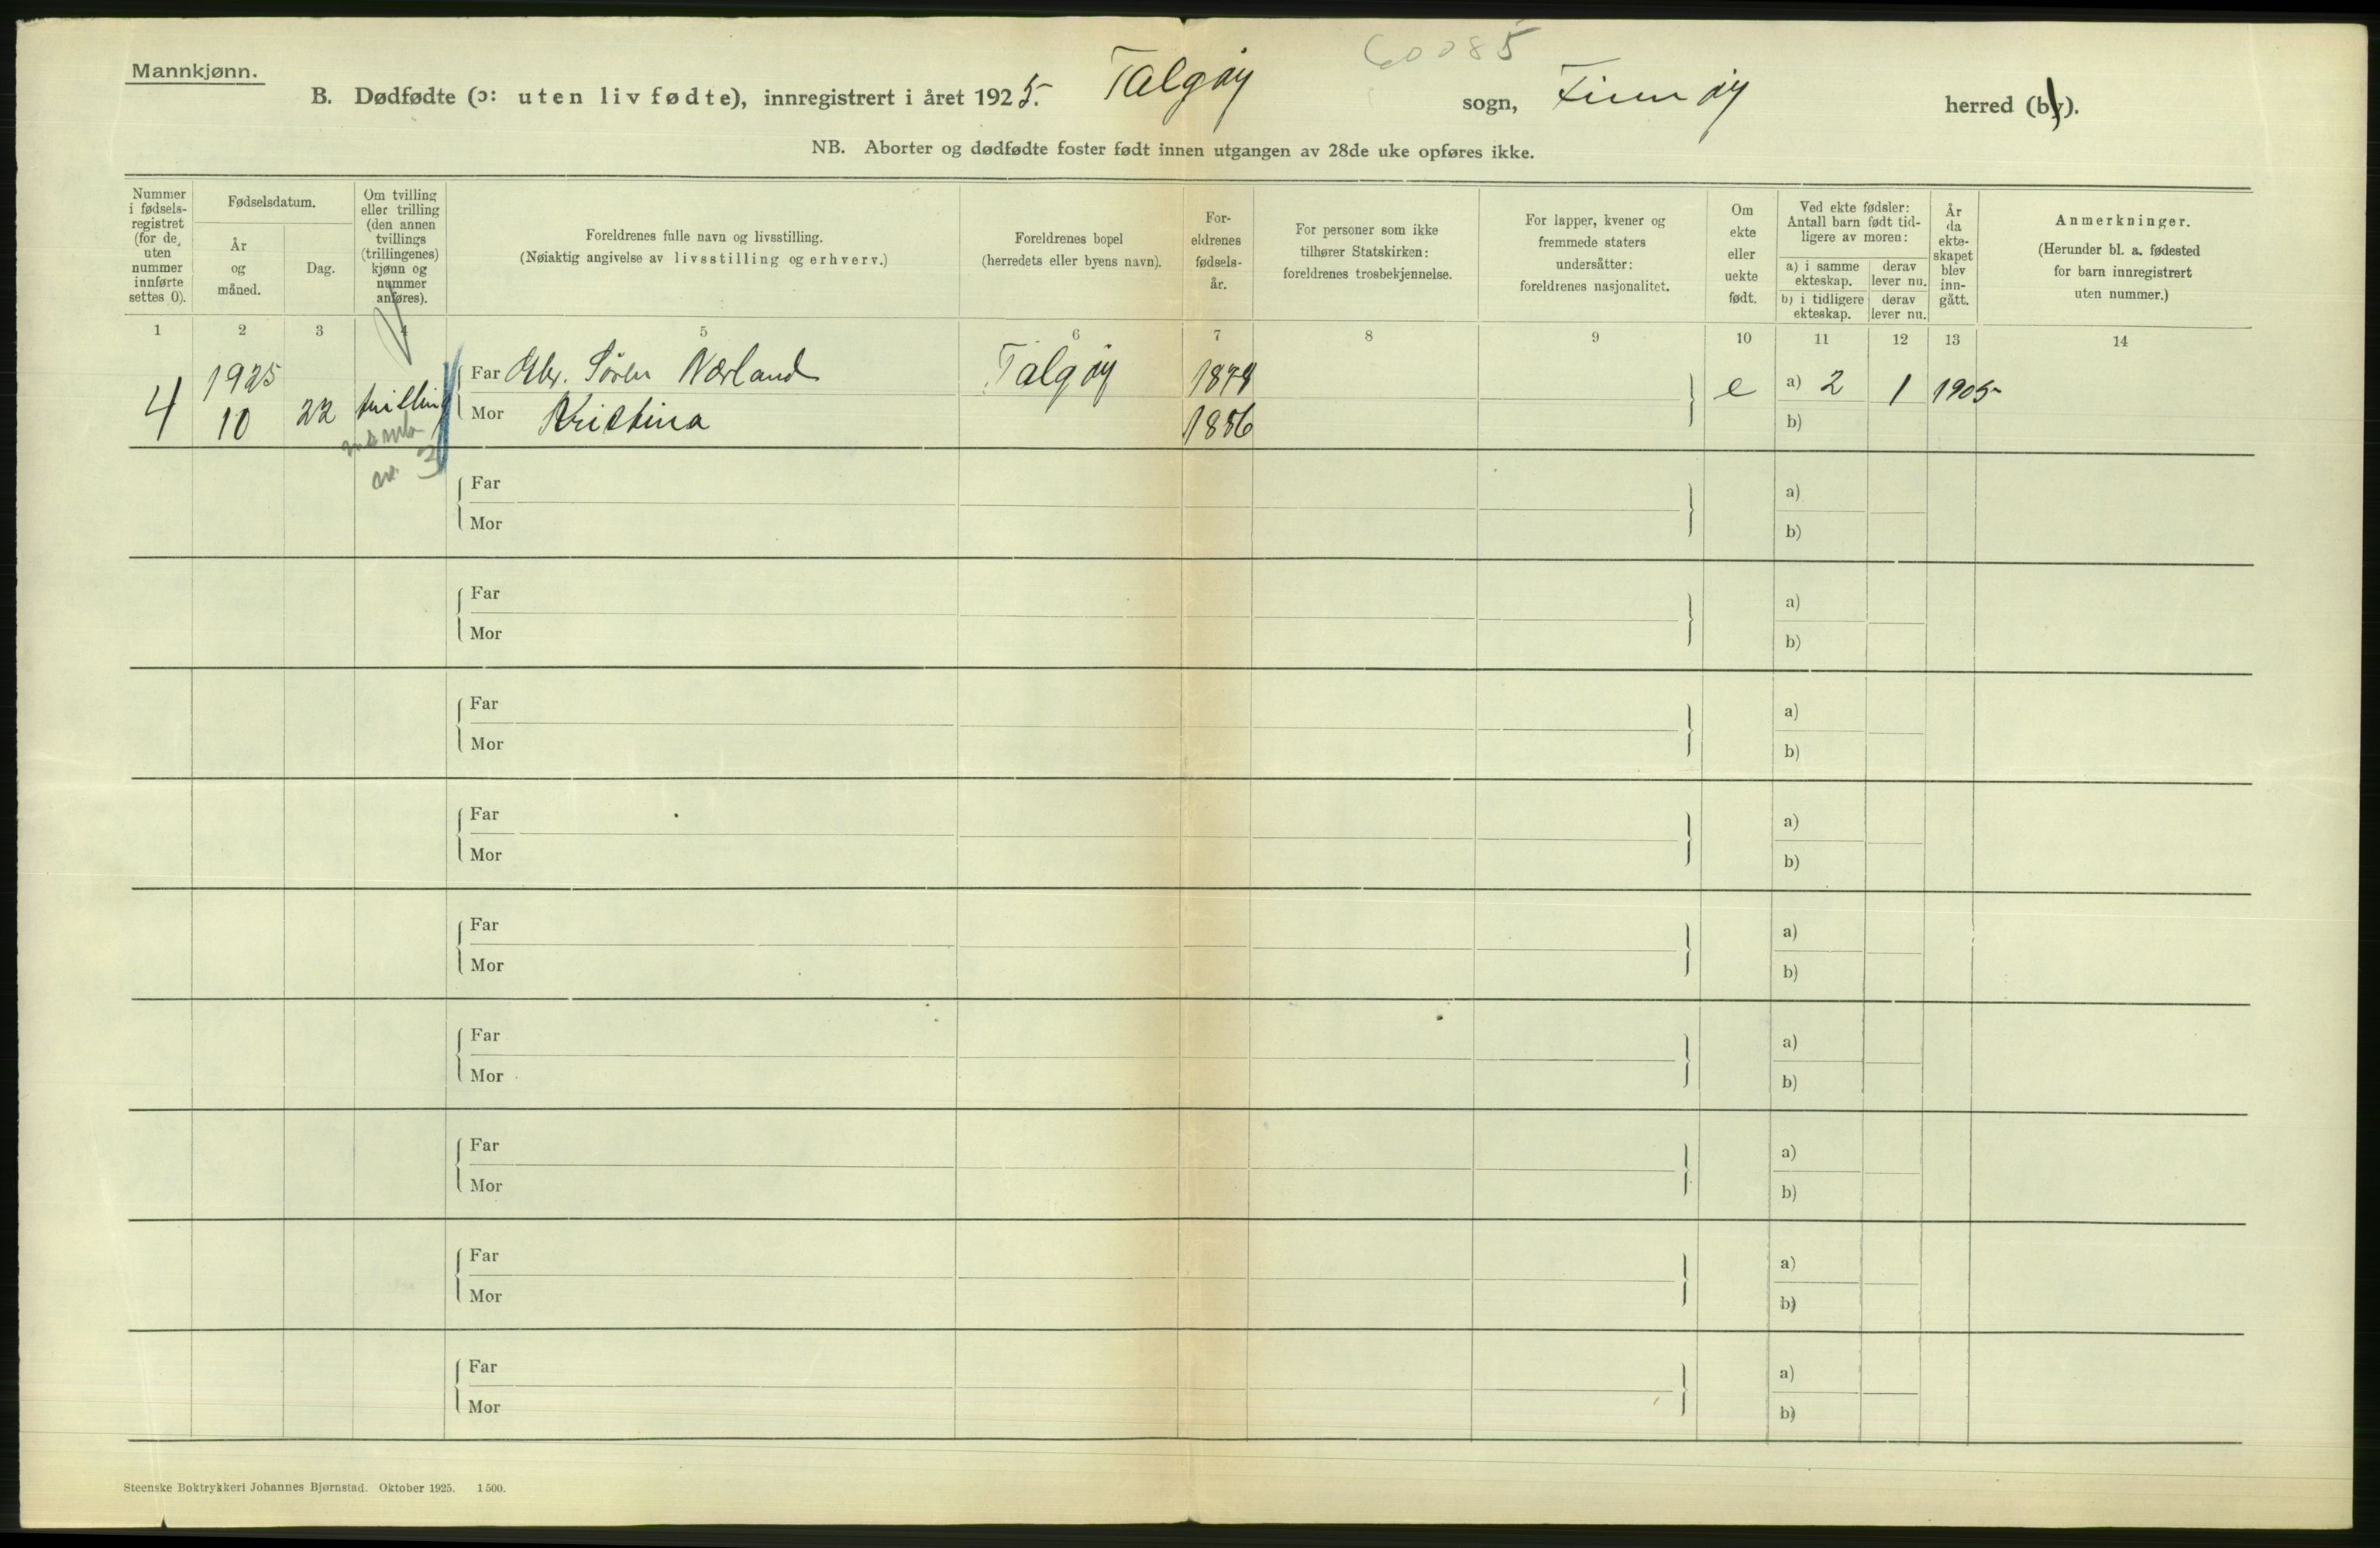 60085
Mannkjønn.
B. Dødfødte (ɔ: uten liv fødte), innregistrert i året 1925. Talgøy sogn, Finnøy herred (by).
NB. Aborter og dødfødte foster født innen utgangen av 28de uke opføres ikke.
Nummer
i fødsels-
registret
(for de,
uten
nummer
innførte
settes 0).
Fødselsdatum.
År
og
måned.
Dag.
Om tvilling
eller trilling
(den annen
tvillings
(trillingenes)
kjønn og
nummer
anføres).
Foreldrenes fulle navn og livsstilling.
(Nøiaktig angivelse av livsstilling og erhverv.)
Foreldrenes bopel
(herredets eller byens navn).
For-
eldrenes
fødsels-
år.
For personer som ikke
tilhører Statskirken:
foreldrenes trosbekjennelse.
For lapper, kvener og
fremmede staters
undersåtter:
foreldrenes nasjonalitet.
Om
ekte
eller
uekte
født.
Ved ekte fødsler:
Antall barn født tid-
ligere av moren:
a) i samme
ekteskap.
derav
lever nu.
b) i tidligere
ekteskap.
derav
lever nu.
År
da
ekte-
skapet
blev
inn-
gått.
Anmerkninger.
(Herunder bl. a. fødested
for barn innregistrert
uten nummer.)
1 2 3 4 5 6 7 8 9 10 11 12 13 14
4 1925 10 22 tvilling
Far Gbr. Søren Nærland Talgøy 1878 e a) 2 1 1905
Mor Kristina 1886 b)
3
Far a)
Mor b)
Far a)
Mor b)
Far a)
Mor b)
Far a)
Mor b)
Far a)
Mor b)
Far a)
Mor b)
Far a)
Mor b)
Far a)
Mor b)
Far a)
Mor b)
Steenske Boktrykkeri Johannes Bjørnstad. Oktober 1925. 1500.